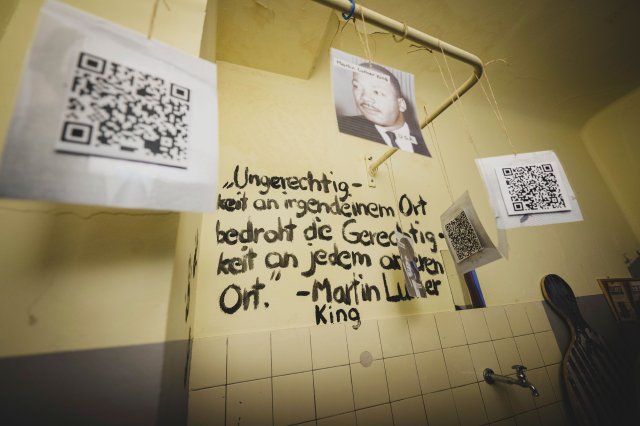 Martin Luther King
„Ungerechtig-
keit an irgendeinem Ort
bedroht die Gerechtig-
keit an jedem anderen
Ort." -Martin Luther
King